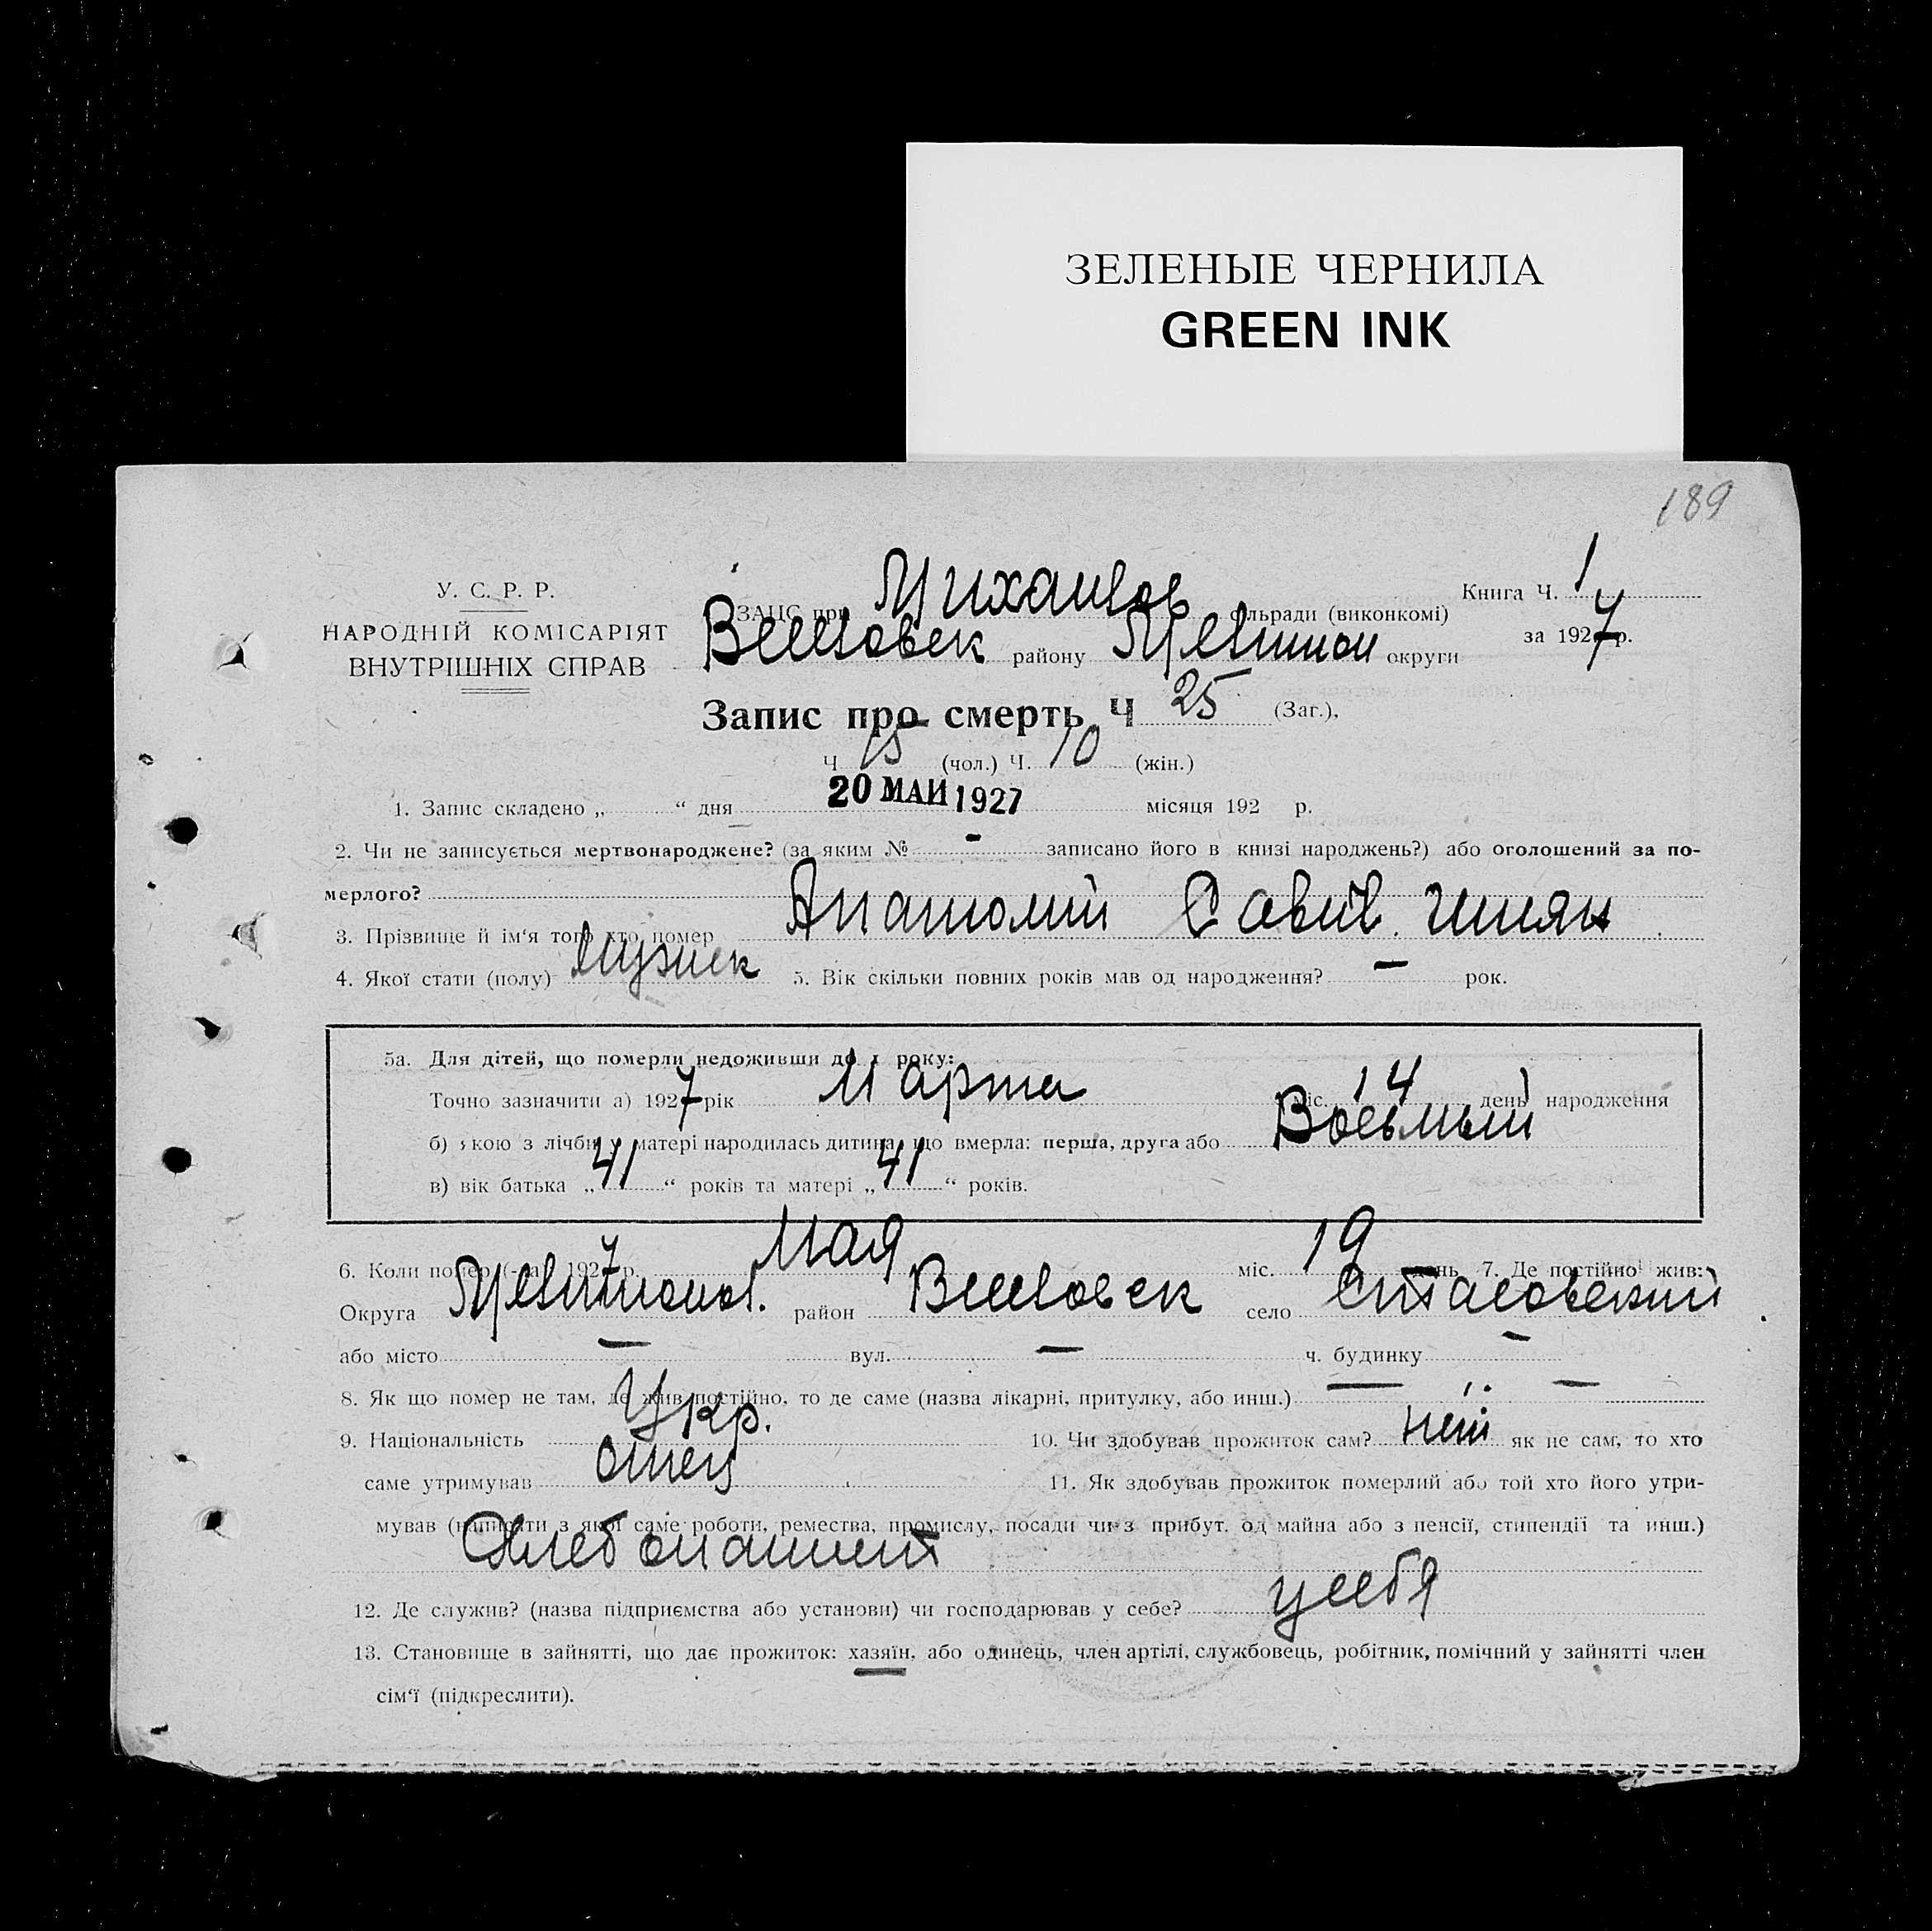 ЗЕЛЕНЫЕ ЧЕРНИЛА
GREEN INK
189
У. С. Р. Р.
НАРОДНІЙ КОМІСАРІЯТ
ВНУТРІШНІХ СПРАВ
ЗАГС при Михайлов сільради (виконкомі)
району округи
Книга Ч. 1
за 1927 р.
Запис про смерть Ч 25 (Заг.),
Ч 15 (чол.) Ч. 10 (жін.)
1. Запис складено „ “ дня 20 МАЙ 1927 місяця 192 р.
2. Чи не записується мертвонароджене? (за яким № - записано його в книзі народжень?) або оголошений за по-
мерлого?
3. Прізвище й ім‘я того хто помер Анатолий Савич
4. Якої стати (полу) 5. Вік скільки повних років мав од народження? — рок.
5а. Для дітей, що померли недоживши до 1 року:
Точно зазначити а) 1927 рік Марта міс. 14 день народження
б) якою з лічби у матері народилась дитина, що вмерла: перша, друга або Восьмый
в) вік батька „ 41 “ років та матері „ 41 “ років.
6. Коли помер (-ла) 1927 р. Мая міс. 19 день 7. Де постійно жив:
Округа район село
або місто — вул. — ч. будинку —
8. Як що помер не там, де жив постійно, то де саме (назва лікарні, притулку, або инш.) — —
9. Національність Укр. 10. Чи здобував прожиток сам? нет як не сам, то хто
саме утримував отец 11. Як здобував прожиток померлий або той хто його утри-
мував (написати з якої саме роботи, ремества, промислу, посади чи з прибут. од майна або з пенсії, стипендії та инш.)
Хлебопашест
12. Де служив? (назва підприємства або установи) чи господарював у себе? у себя
13. Становище в зайнятті, що дає прожиток: хазяїн, або одинець, член артілі, службовець, робітник, помічний у зайнятті член
сім‘ї (підкреслити).